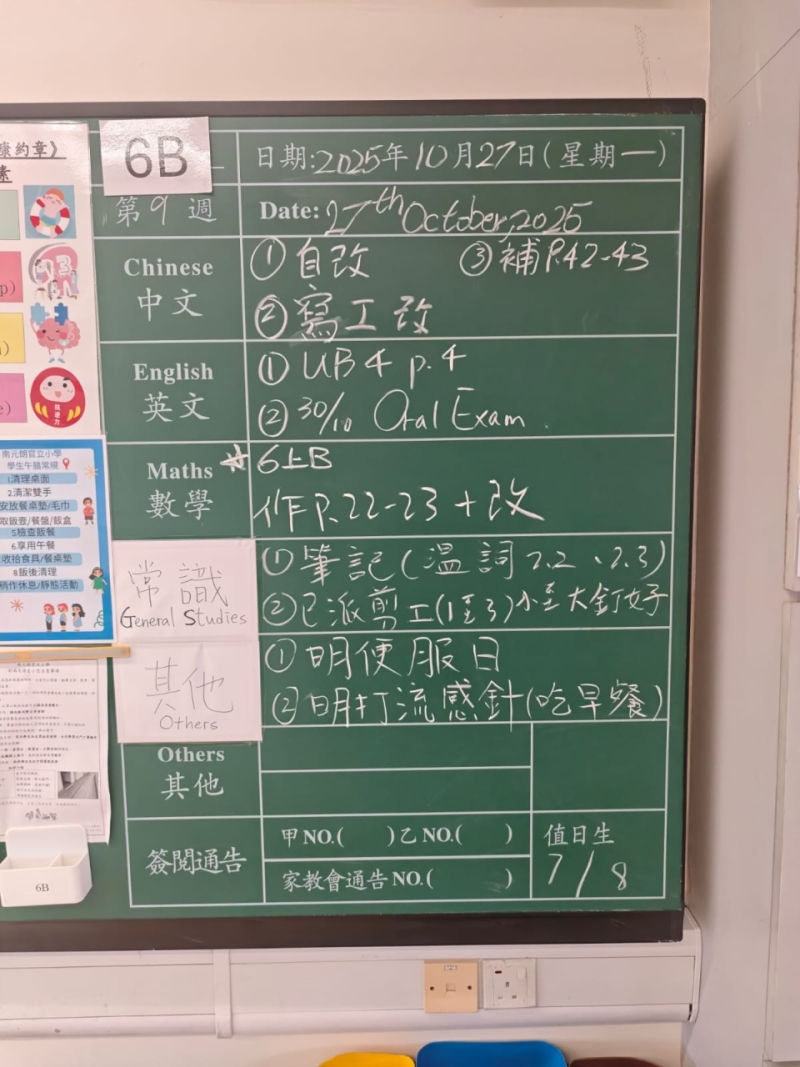 康約章》
素
6B
日期:2025年10月27日(星期一)
第9週
Date: 27th October, 2025
Chinese
中文
①自改 ③補P.42-43
②寫工改
English
英文
①UB4 p.4
②30/10 Oral Exam
Maths
數學
☆6上B
作P.22-23+改
常識
General Studies
①筆記(温詞2.2、2.3)
②已派剪工(1至3)小至大釘好
其他
Others
①明便服日
②明打流感針(吃早餐)
Others
其他
簽閱通告
甲NO.( )乙NO.( )
家教會通告NO.( )
值日生
7/8
南元朗官立小學
學生午膳常規
1清理桌面
2.清潔雙手
安放餐桌墊/毛巾
取飯壺/餐盤/飯盒
5檢查飯餐
6.享用午餐
收拾食具/餐桌墊
8.飯後清理
稍作休息/靜態活動
6B